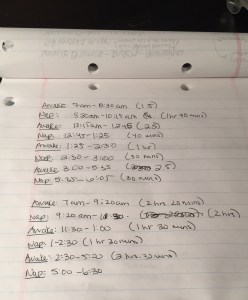 Awake: 7am - 8:30am (1.5)
Nap: 8:30am - 10:15am (1hr 45 mins)
Awake: 10:15am - 12:45 (2.5)
Nap: 12:45 - 1:25 (40 mins)
Awake: 1:25 - 2:30 (1 hr)
Nap: 2:30 - 3:00 (30 mins)
Awake: 3:00 - 5:35 2.5)
Nap: 5:35 - 6:05 (30 mins)
Awake: 7am - 9:20am (2 hrs 20 mins)
Nap: 9:20am - (2 hrs)
Awake: 11:30 - 1:00 (1 hr 30 mins)
Nap: 1 - 2:30 (1 hr 30 mins)
Awake: 2:30 - 5:00 (2 hrs 30 mins)
Nap: 5:00 - 6:30